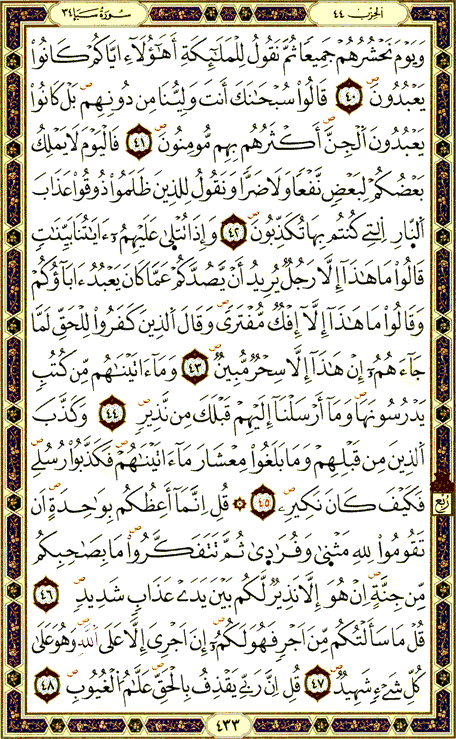 سُورَةُ سَبَإٍ ٣٤ الحزب ٤٤
وَيَوْمَ نَحْشُرُهُمْ جَمِيعاً ثُمَّ نَقُولُ لِلْمَلَٰٓئِكَةِ أَهَٰٓؤُلَآءِ اِيَّاكُمْ كَانُواْ
يَعْبُدُونَ ٤٠ قَالُواْ سُبْحَٰنَكَ أَنتَ وَلِيُّنَا مِن دُونِهِم بَلْ كَانُواْ
يَعْبُدُونَ اَ۬لْجِنَّ أَكْثَرُهُم بِهِم مُّومِنُونَ ٤١ فَالْيَوْمَ لَا يَمْلِكُ
بَعْضُكُمْ لِبَعْضٖ نَّفْعاً وَلَا ضَرّاً وَنَقُولُ لِلذِينَ ظَلَمُواْ ذُوقُواْ عَذَابَ
اَ۬لنَّارِ اِ۬لتِے كُنتُم بِهَا تُكَذِّبُونَ ٤٢ وَإِذَا تُتْلَىٰ عَلَيْهِمُۥٓ ءَايَٰتُنَا بَيِّنَٰتٖ
قَالُواْ مَا هَٰذَآ إِلَّا رَجُلٞ يُرِيدُ أَنْ يَّصُدَّكُمْ عَمَّا كَانَ يَعْبُدُ ءَابَآؤُكُمْ
وَقَالُواْ مَا هَٰذَآ إِلَّآ إِفْكٞ مُّفْتَرىٗ وَقَالَ اَ۬لذِينَ كَفَرُواْ لِلْحَقِّ لَمَّا
جَآءَهُمُۥٓ إِنْ هَٰذَآ إِلَّا سِحْرٞ مُّبِينٞ ٤٣ وَمَآ ءَاتَيْنَٰهُم مِّن كُتُبٖ
يَدْرُسُونَهَا وَمَآ أَرْسَلْنَآ إِلَيْهِمْ قَبْلَكَ مِن نَّذِيرٖ ٤٤ وَكَذَّبَ
اَ۬لذِينَ مِن قَبْلِهِمْ وَمَا بَلَغُواْ مِعْشَارَ مَآ ءَاتَيْنَٰهُمْ فَكَذَّبُواْ رُسُلِے
فَكَيْفَ كَانَ نَكِيرِۦ ٤٥ ۞ قُلِ اِنَّمَآ أَعِظُكُم بِوَٰحِدَةٍ اَن
تَقُومُواْ لِلهِ مَثْنَىٰ وَفُرَٰدَىٰ ثُمَّ تَتَفَكَّرُواْ مَا بِصَٰحِبِكُم
مِّن جِنَّةٍ اِنْ هُوَ إِلَّا نَذِيرٞ لَّكُم بَيْنَ يَدَےْ عَذَابٖ شَدِيدٖ ٤٦
قُلْ مَا سَأَلْتُكُم مِّنَ اَجْرٖ فَهُوَ لَكُمُۥٓ إِنَ اَجْرِيَ إَلَّا عَلَى اَ۬للَّهِ وَهُوَ عَلَىٰ
كُلِّ شَےْءٖ شَهِيدٞ ٤٧ قُلِ اِنَّ رَبِّے يَقْذِفُ بِالْحَقِّ عَلَّٰمُ اُ۬لْغُيُوبِ ٤٨
ربع
٤٣٣